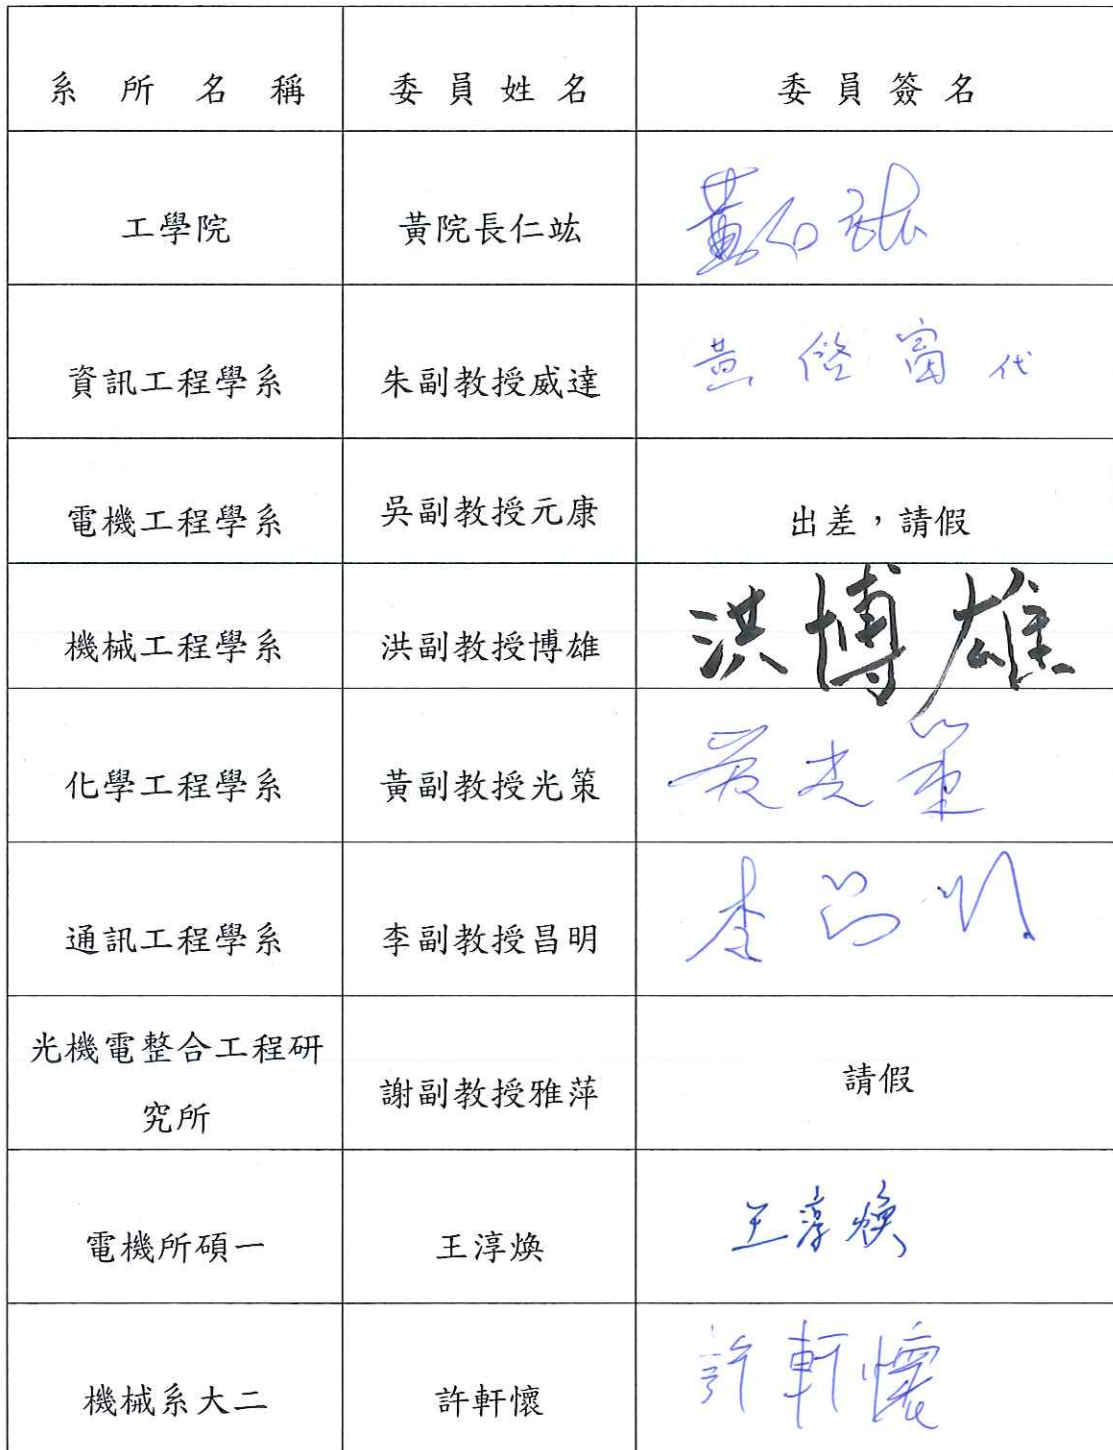 系所名稱 委員姓名 委員簽名
工學院 黃院長仁竑 黃仁竑
資訊工程學系 朱副教授威達 黃啓富代
電機工程學系 吳副教授元康 出差，請假
機械工程學系 洪副教授博雄 洪博雄
化學工程學系 黃副教授光策 黃光策
通訊工程學系 李副教授昌明 李昌明
光機電整合工程研
究所 謝副教授雅萍 請假
電機所碩一 王淳煥 王淳煥
機械系大二 許軒懷 許軒懷